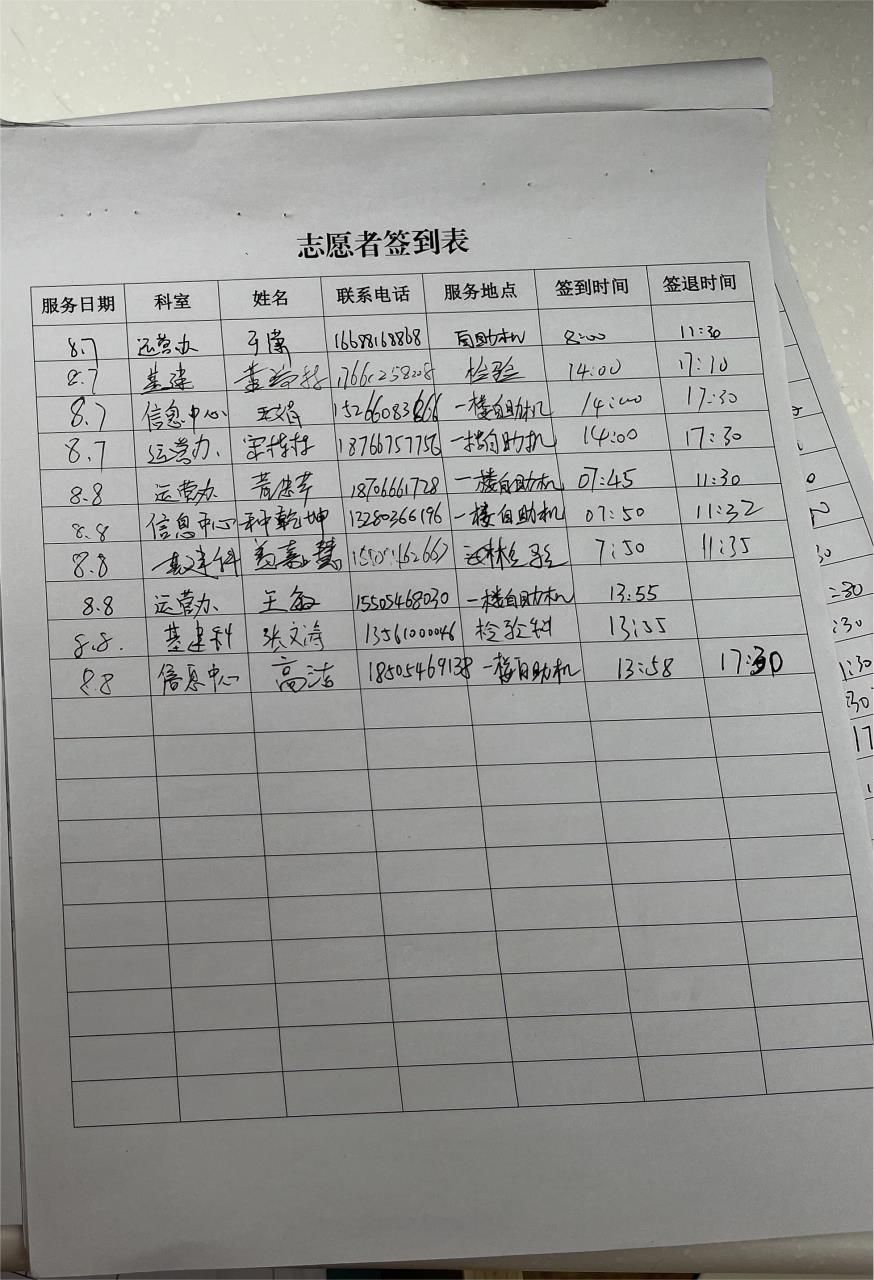 志愿者签到表
服务日期 科室 姓名 联系电话 服务地点 签到时间 签退时间
8.7 运营办 于潇 16688168868 自助机 8:00 11:30
8.7 基建 检验 14:00 17:10
8.7 信息中心 一楼自助机 14:00 17:30
8.7 运营办 18766757756 一楼自助机 14:00 17:30
8.8 运营办 18706661728 一楼自助机 07:45 11:30
8.8 信息中心 种乾坤 13280366196 一楼自助机 07:50 11:32
8.8 基建科 检验 7:50 11:35
8.8 运营办 王敏 15505468030 一楼自助机 13:55
8.8. 基建科 张文涛 13561000046 检验科 13:55
8.8 信息中心 高洁 18505469138 一楼自助机 13:58 17:30
:30
:30
1:30
:30
17